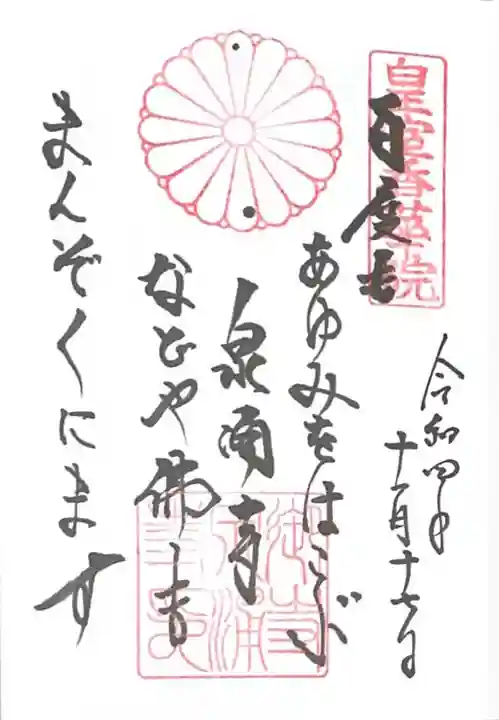 皇室香華院
百度も
あゆみをはこぶ
泉涌寺
などや佛
まんぞくにます
令和四年
十一月十七日